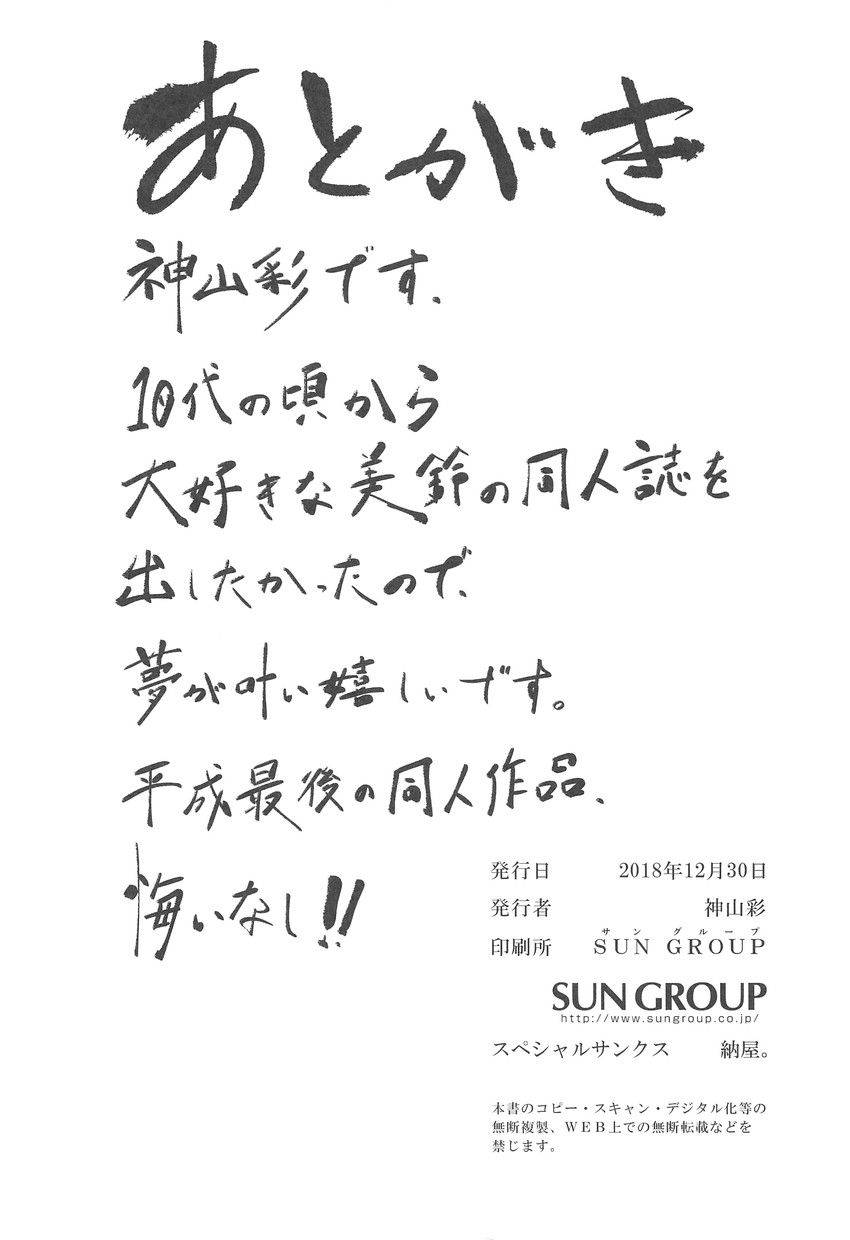 あとがき
神山彩です、
10代の頃から
大好きな美鈴の同人誌を
出したかったので、
夢が叶い嬉しいです。
平成最後の同人作品、
悔いなし!!
発行日 2018年12月30日
発行者 神山彩
サン グループ
印刷所 SUN GROUP
SUN GROUP
http://www.sungroup.co.jp/
スペシャルサンクス 納屋。
本書のコピー・スキャン・デジタル化等の
無断複製、WEB上での無断転載などを
禁じます。